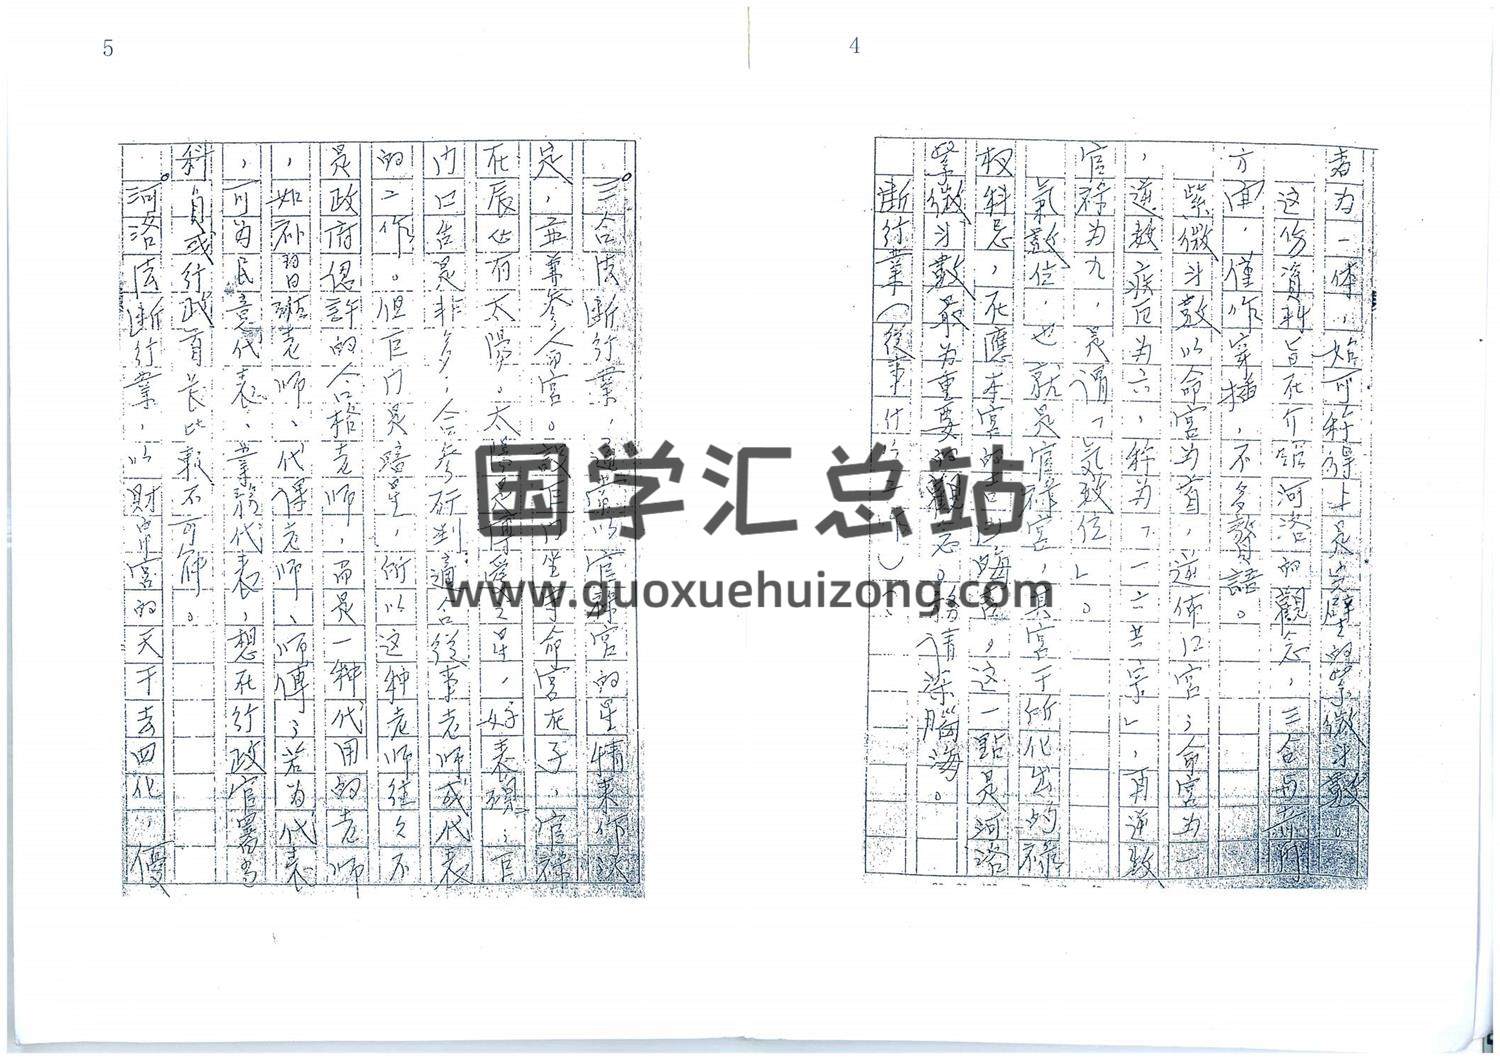 4
者为一体，始可称得上是完璧的紫微斗數。
这份資料旨在介紹河洛的觀念，三合与
方面，僅作穿插，不多贅語。
紫微斗数以命宮为首，逆佈12宮；命宮为一
，逆数疾厄为六，称为「一六共宗」，再逆数
官祿为九，是谓「气数位」。
氣數位，也就是官祿宮，其宮干所化出的祿
权科忌，在應本宮的吉凶悔吝。这一點是河洛
紫微斗數最为重要的觀念。務請深腦海。
斷行業（從事什
5
三合法断行業，通常以官祿宮的星情来作决
定，並兼參入命宮。設巨门坐守命宮在子，官祿
在辰佔有太陽。太陽是尊爱之星，好表現；巨
门口舌是非多，合參研判適合從事老师或代表
的工作。但巨门是暗星，所以这种老师往々不
是政府認許的合格老师，而是一种代用的老师
，如补習班老师、代課老师、师傅；若为代表
，可为民意代表、業務代表，想在行政官署當
科員或行政首長比較不可能。
河洛法断行業，以財帛宮的天干去四化，優
国学汇总站
www.guoxuehuizong.com